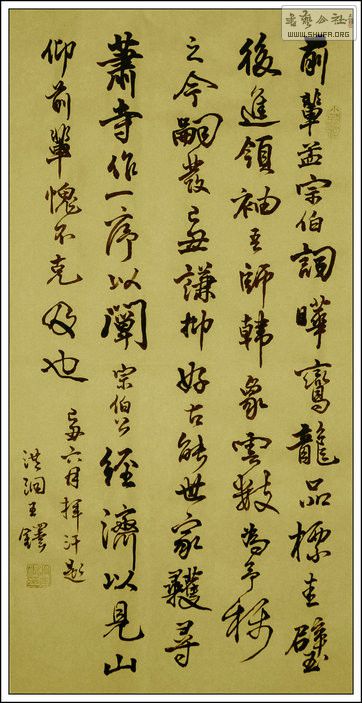 前輩孟宗伯詞曄鸞龍品標圭璧
後進領袖吾師韓象雲數為予稱
之今嗣發己每謙抑好古能世家難尋
蕭寺作一序以闡宗伯公經濟以見山
仰前輩愧不克及也
己每六月揮汗題
洪洞王鐸
WWW.SHUFA.ORG